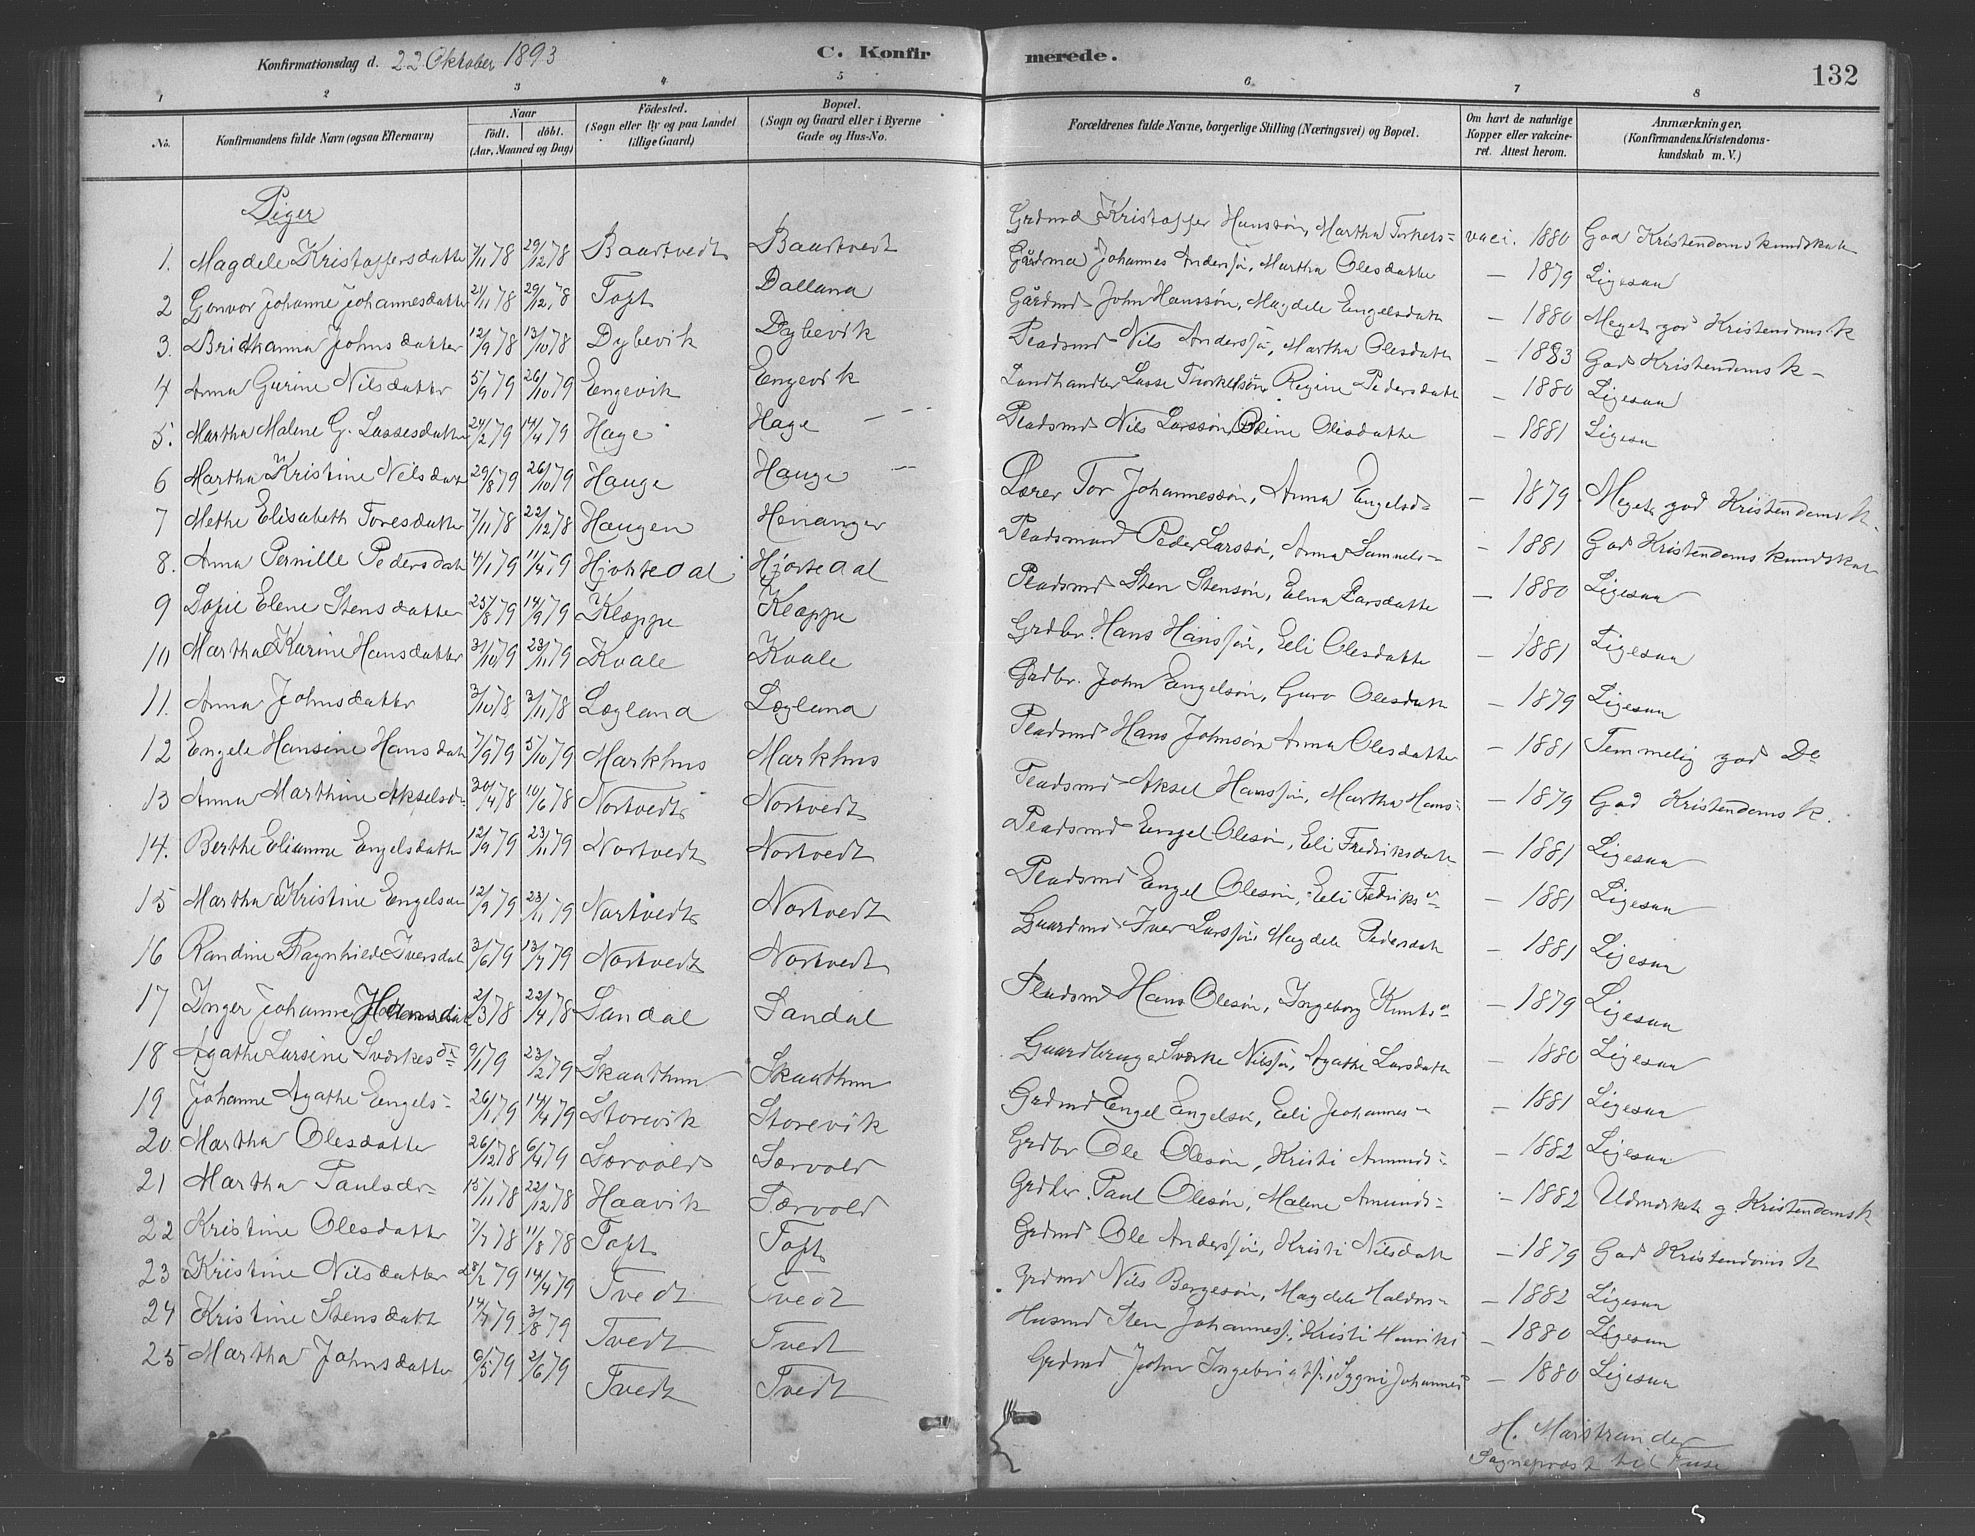 Konfirmationsdag d. 22 Oktober 1893 C. Konfirmerede. 132
1 2 3 4 5 6 7 8
No. Konfirmandens fulde Navn (ogsaa Efternavn) Naar födt. döbt. (Aar, Maaned og Dag) Födested. (Sogn eller By og paa Landet tillige Gaard) Bopæl. (Sogn og Gaard eller i Byerne Gade og Hus-No. Forældrenes fulde Navne, borgerlige Stilling (Næringsvei) og Bopæl. Om havt de naturlige Kopper eller vakcineret. Attest herom. Anmærkninger, (Konfirmandens Kristendomskundskab m. V.)
Piger
1. Magdele Kristoffersdatter 7/11 78 29/12 78 Baartvedt Baartvedt Grdmd Kristoffer Hanssön, Martha Torkels- vaci. 1880 God Kristendomskundskab
2 Gonvor Johanne Johannesdatter 21/11 78 29/12 78 Toft Dalland Gårdmd Johannes Anderssø, Martha Olesdatte — 1879 Ligesaa
3. Johnsdatter 12/9 78 13/10 78 Dybevik Dybevik Gårdmd John Hanssön, Magdele Engelsdatte — 1880 Meget god Kristendoms K
4 Anna Gurine Nilsdatter 5/9 79 26/10 79 Engevik Engevik Pladsmd Nils Anderssø, Martha Olesdatte — 1883 God Kristendoms K—
5. Martha Malene G. Lassesdatter 24/2 79 14/4 79 Hage Hage — Landhandler Lasse Thorkelsön, Regine Pedersdatte — 1880 Ligesaa
6 Martha Kristine Nilsdatt 29/8 79 26/10 79 Hauge Hauge — Pladsmd Nils Larssön, Oline Olesdatte — 1881 Ligesaa
7 Methe Elisabeth Toresdatter 7/11 78 22/12 78 Haugen Henanger Lærer Tor Johannessön, Anna Engelsd- — 1879 Meget god Kristendoms K.
8. Anna Pernille Pedersdatt 4/1 79 11/4 79 Hjortedal Hjortedal Pladsmand Peder Larssö, Anna Samuels- — 1881 God Kristendomskundskab
9 Sofie Elene Stensdatter 25/8 79 14/9 79 Kleppe Kleppe Pladsmd Sten Stensön, Elna Larsdatte — 1880 Ligesaa
10 Martha Karine Hansdatter 31/10 79 23/11 79 Kvale Kvale Grdbr. Hans Hanssøn, Eli Olesdatte — 1881 Ligesaa
11. Anna Johnsdatter 3/10 78 3/11 78 Lægland Lægland Grdbr. John Engelsön, Guro Olesdatte — 1879 Ligesaa
12 Engele Hansine Hansdatt 7/9 79 5/10 79 Markhus Markhus Pladsmd Hans Johnsön Anna Olesdatter — 1881 Temmelig god Do
13 Anna Marthine Akselsd- 30/4 78 10/6 78 Nortvedt Nortvedt Pladsmd Aksel Hanssøn, Martha Hans- — 1879 God Kristendoms K.
14. Berthe Elianne Engelsdatte 12/9 79 23/11 79 Nortvedt Nortvedt Pladsmd Engel Olesön, Eli Fredriksdatt — 1881 Ligesaa
15 Martha Kristine Engelsda 12/9 79 23/11 79 Nortvedt Nortvedt Pladsmd Engel Olesön, Eli Fedriks- — 1881 Ligesaa
16 Randine Ragnhilde Iversdat 3/6 79 13/7 79 Nortvedt Nortvedt Gaardmd Iver Larssøn Magdele Pedersdatt — 1881 Ligesaa
17 Inger Johanne Hansdat 2/3 78 22/4 78 Sandal Sandal Pladsmd Hans Olesön, Ingeborg Knuts- — 1879 Ligesaa
18 Agathe Larsine Sværkesdr 9/1 79 23/2 79 Skaathun Skaathun Gaardbruger Sværke Nilssøn, Agathe Larsdatte — 1880 Ligesaa
19 Johanne Agathe Engels- 26/1 79 14/4 79 Storevik Storevik Grdmd Engel Engelsön, Eli Johannes- — 1881 Ligesaa
20. Martha Olesdatter 26/12 78 6/4 79 Særvold Særvold Grdbr Ole Olesön, Kristi Amunds- — 1882 Ligesaa
21 Martha Paulsdr- 15/11 78 22/12 78 Haavik Særvold Grdbr. Paul Olesön, Malene Amunds- — 1882 Udmærket g. Kristendomsk
22 Kristine Olesdatter 7/7 78 11/8 78 Toft Toft Grdmd Ole Anderssøn, Kristi Nilsdatt — 1879 God Kristendoms K
23 Kristine Nilsdatter 28/2 79 14/4 79 Tvedt Tvedt Grdmd Nils Bergesön, Magdele Haldors- — 1882 Ligesaa
24 Kristine Stensdatt 14/7 79 3/8 79 Tvedt Tvedt Husmd Sten Johanness, Kristi Henriks — 1880 Ligesaa
25 Martha Johnsdatter 6/5 79 2/6 79 Tvedt Tvedt Grdmd John Ingebrigts, Sygni Johannes — 1880 Ligesaa
H. Marstrander
Sogneprest til Fuse